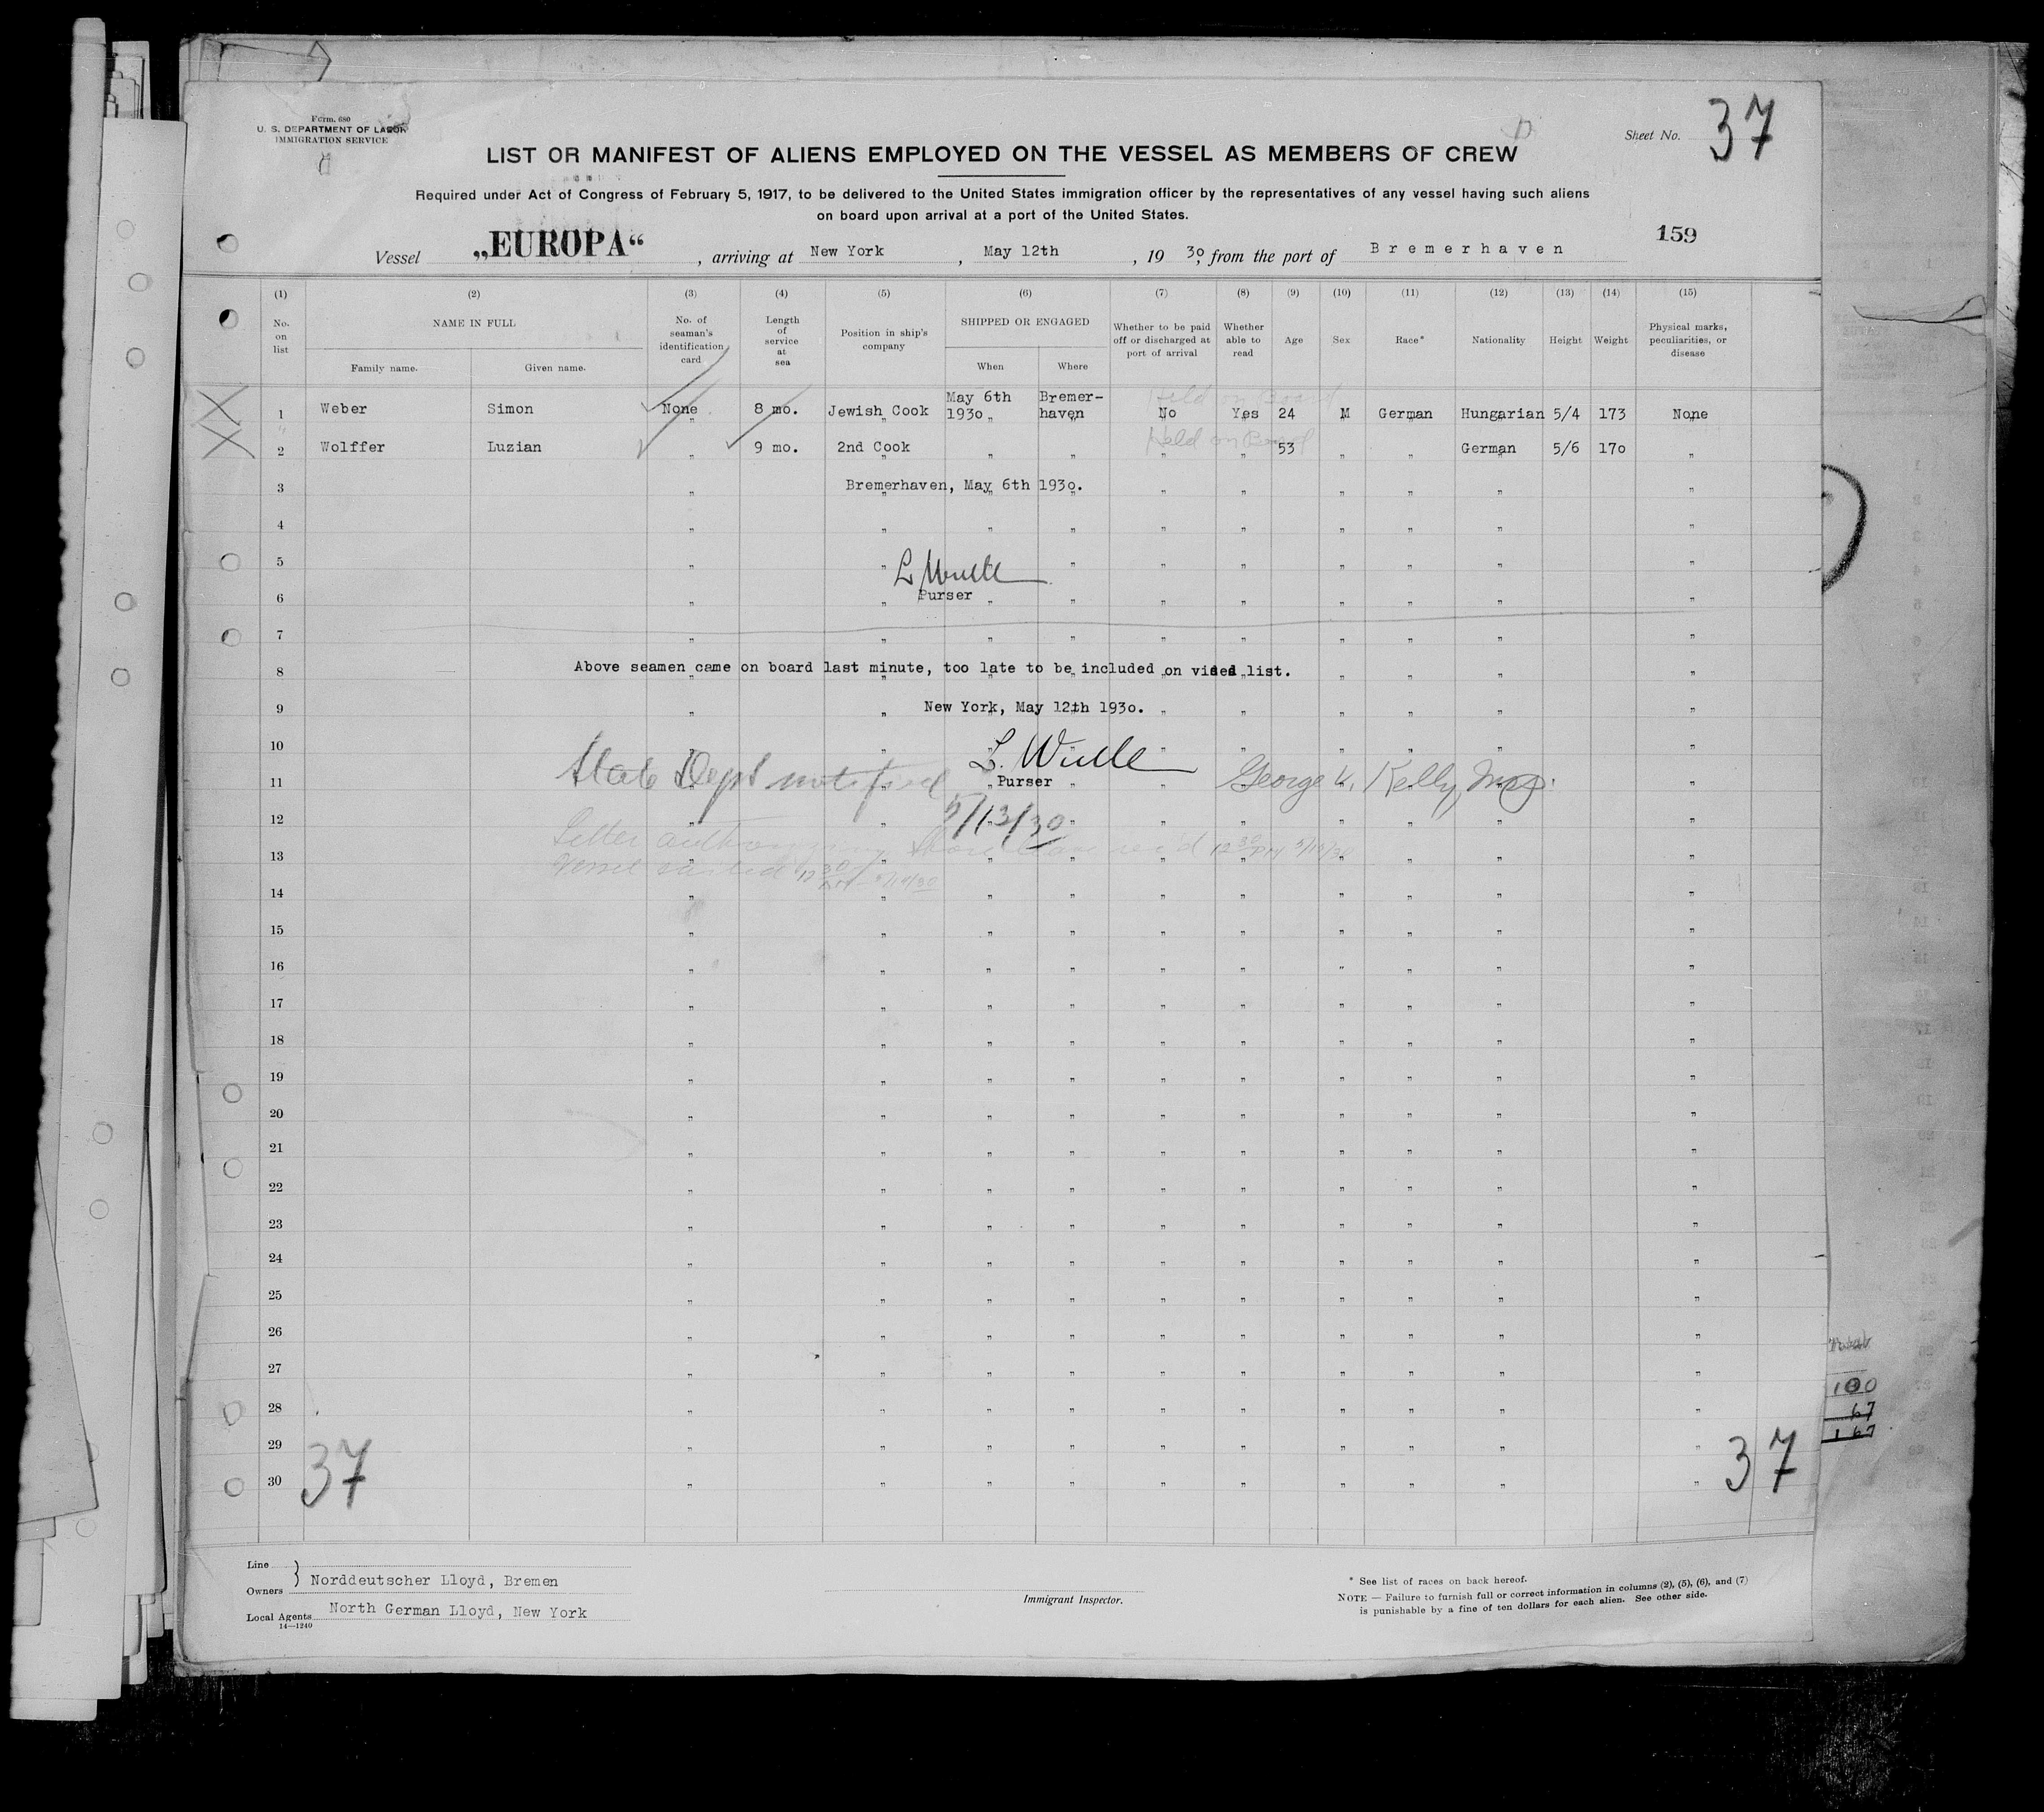 Form. 680
U. S. DEPARTMENT OF LABOR
IMMIGRATION SERVICE
Sheet No. 37
LIST OR MANIFEST OF ALIENS EMPLOYED ON THE VESSEL AS MEMBERS OF CREW
Required under Act of Congress of February 5, 1917, to be delivered to the United States immigration officer by the representatives of any vessel having such aliens
on board upon arrival at a port of the United States.
159
Vessel „EUROPA“, arriving at New York, May 12th, 1930, from the port of Bremerhaven
(1) (2) (3) (4) (5) (6) (7) (8) (9) (10) (11) (12) (13) (14) (15)
No. on list
NAME IN FULL
Family name. Given name.
No. of seaman's identification card
Length of service at sea
Position in ship's company
SHIPPED OR ENGAGED
When Where
Whether to be paid off or discharged at port of arrival
Whether able to read
Age
Sex
Race*
Nationality
Height
Weight
Physical marks, peculiarities, or disease
Held on Board
1 Weber Simon None 8 mo. Jewish Cook May 6th 1930 Bremer-haven No Yes 24 M German Hungarian 5/4 173 None
Held on Board
2 Wolffer Luzian „ 9 mo. 2nd Cook „ „ „ „ 53 „ „ German 5/6 170 „
3 Bremerhaven, May 6th 1930.
4
5
6 Purser
7
8 Above seamen came on board last minute, too late to be included on vised list.
9 New York, May 12th 1930.
10
11 State Dept notified L. Wulle Purser George K. Kelly, Insp.
12 5/13/30
13 Letter authorizing shore leave rec'd 12 30 PM 5/13/30
Vessel sailed 12 30
14
15
16
17
18
19
20
21
22
23
24
25
26
27
28
29
30
37 37
100
67
167
Line
Owners } Norddeutscher Lloyd, Bremen
Local Agents North German Lloyd, New York
14—1240
Immigrant Inspector.
* See list of races on back hereof.
NOTE — Failure to furnish full or correct information in columns (2), (5), (6), and (7)
is punishable by a fine of ten dollars for each alien. See other side.